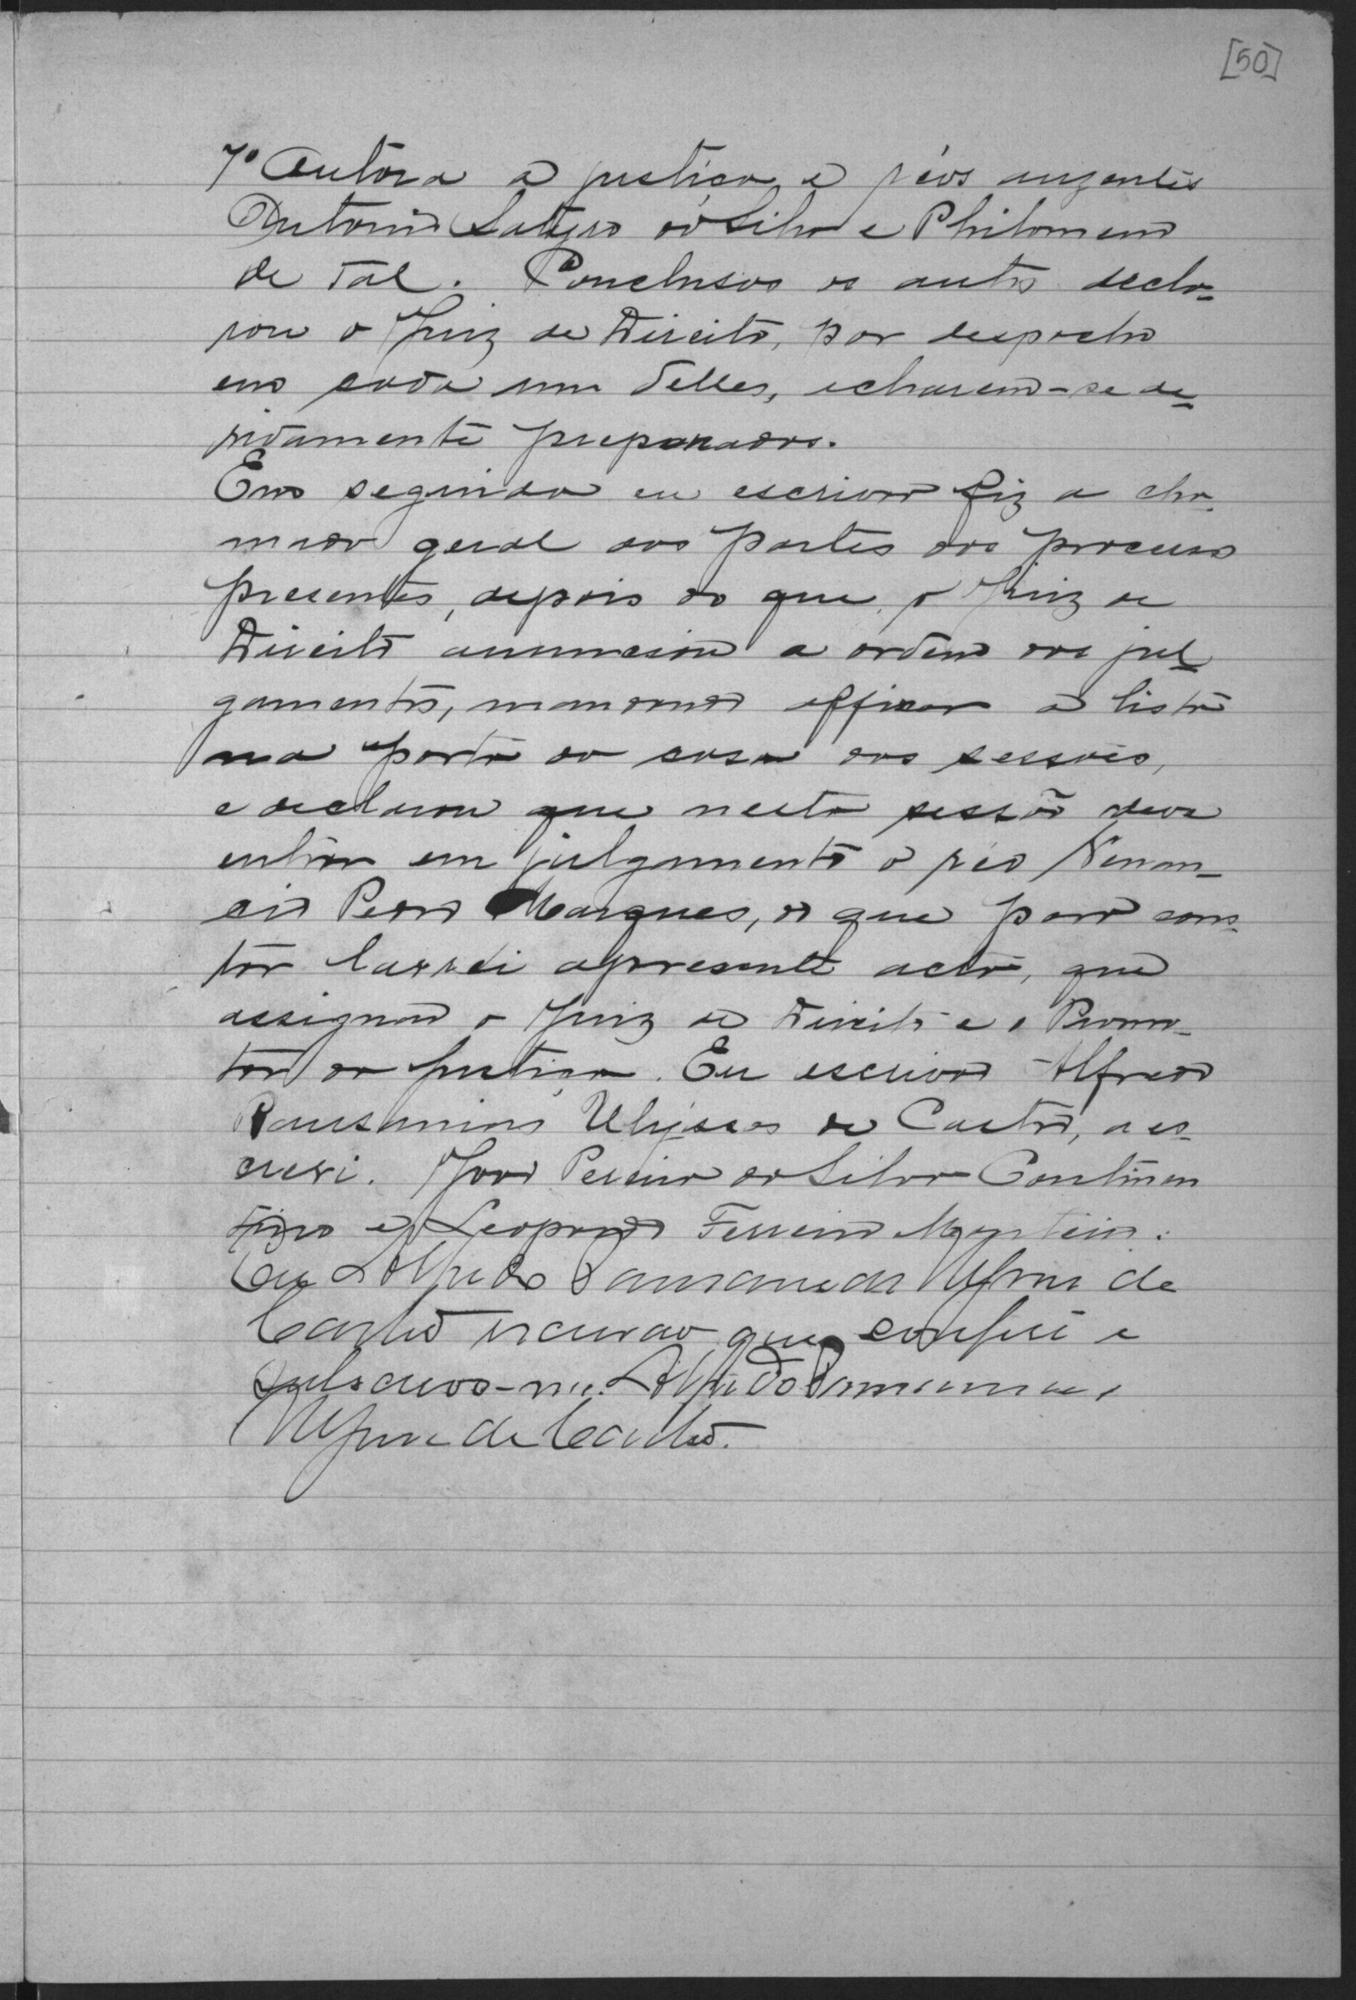 [50]
7º Autora a justiça e réos auzentes
Antonio Satyro da Silva e Philomena
de Tal. Conclusos os autos decla-
rou o Juiz de Direito, por despacho
em cada um delles, acharem-se de-
vidamente preparados.
Em seguida eu escrivão fiz a cha-
mada geral das partes dos processos
presentes, depois do que o Juiz de
Direito annunciou a ordem dos jul-
gamentos, mandando affixar a lista
na porta da casa das sessões,
e declarou que nesta sessão deve
entrar em julgamento o réo Venan-
cio Pedro Marques, do que para cons-
tar lavrei a presente acta, que
assignão o Juiz de Direito e o Promo-
tor da Justiça. Eu escrivão Alfredo
Pausanias Ulysses de Castro, a es-
crevi. João Pereira da Silva Continen
tino e Leopoldo Ferreira Monteiro.
Eu Alfredo Pausanias Ulysses de
Castro escrivão que conferi e
subscrevo-me. Alfredo Pausanias
Ulysses de Castro.